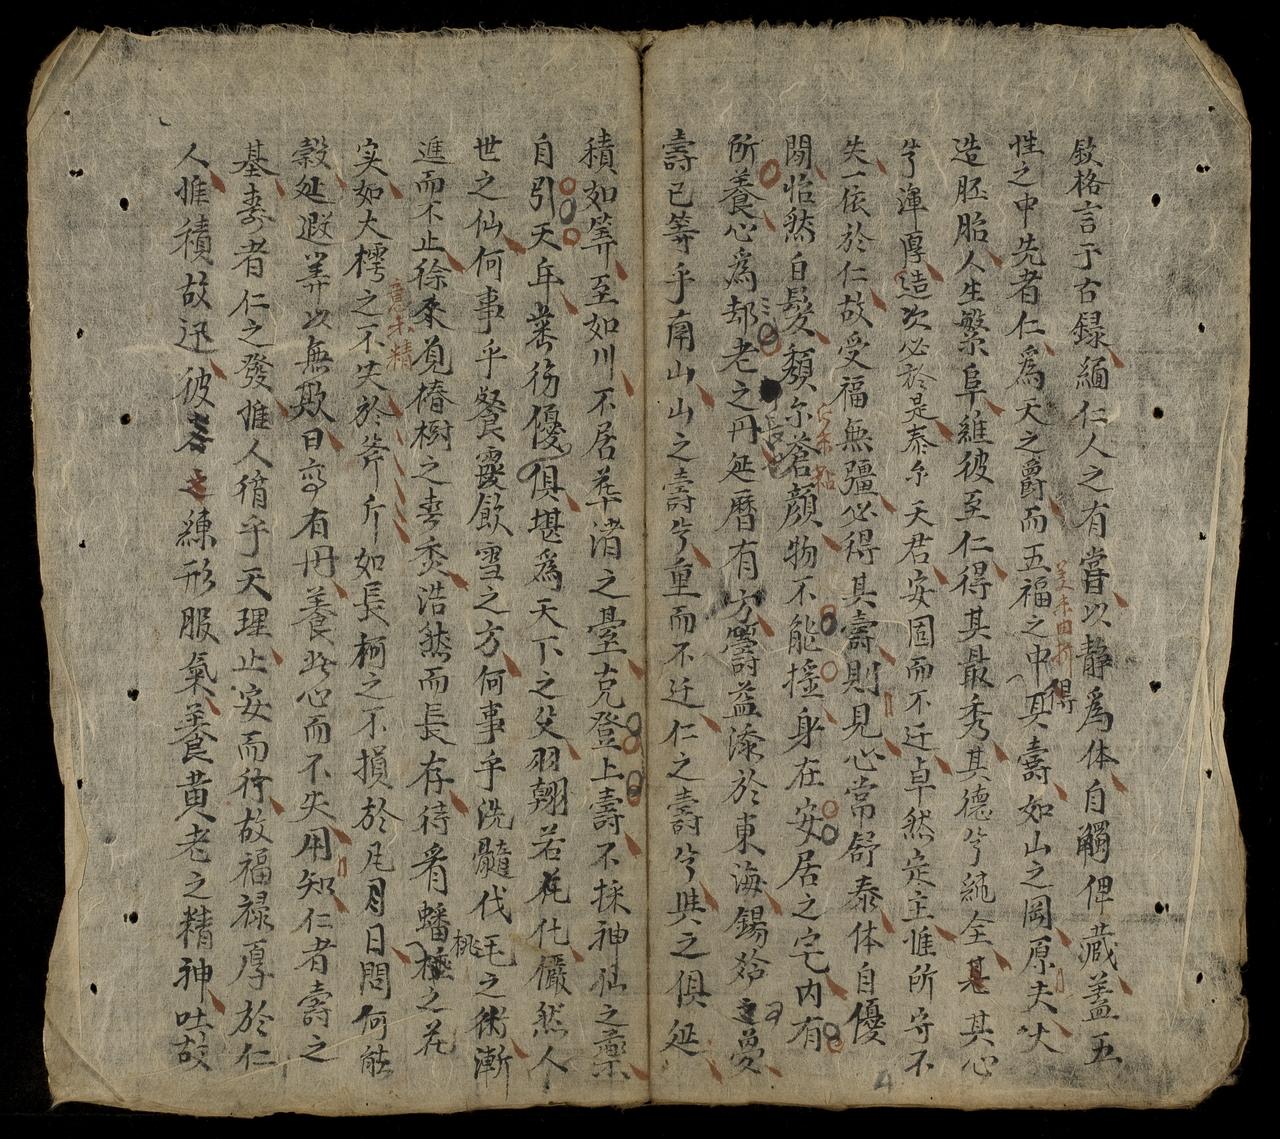 欽格言于古録緬仁人之有嘗以靜爲体自觸俾藏蓋五
性之中先者仁爲天之爵而五福之中得其壽如山之岡原夫父
造胚胎人生繁阜維彼至仁得其最秀其德兮純全其心
兮渾厚造次必於是泰乎天君安固而不迁卓然定主惟所寄不
失一依於仁故受福無疆必得其壽則見心常舒泰体自優
閑怡然白髮頹尔蒼顏物不能搖身在安居之宅内有
所養心爲却老之丹延曆有方籌益添於東海錫於之夢
壽已等乎南山山之壽兮重而不迁仁之壽兮與之俱延
積如筭至如川不居華渚之臺克登上壽不採神仙之藥
自引天年耉俻優俱堪爲天下之父羽翺若花化儼然人
世之仙何事乎餐霞飲雪之方何事乎洗髓代毛之術漸
進而不止徐來覓樁樹之春秀浩然而長存待看蟠桃之花
实如大樗之不失於斧斤如長柯之不損於凡月日問何能
穀延遐筭以無欺曰亦有丹養此心而不失用知仁者壽之
基壽者仁之發惟人循乎天理止安而行故福禄厚於仁
人惟積故迅彼客之練形服氣養黄老之精神吐故
美未由折
欠未粘
意未精